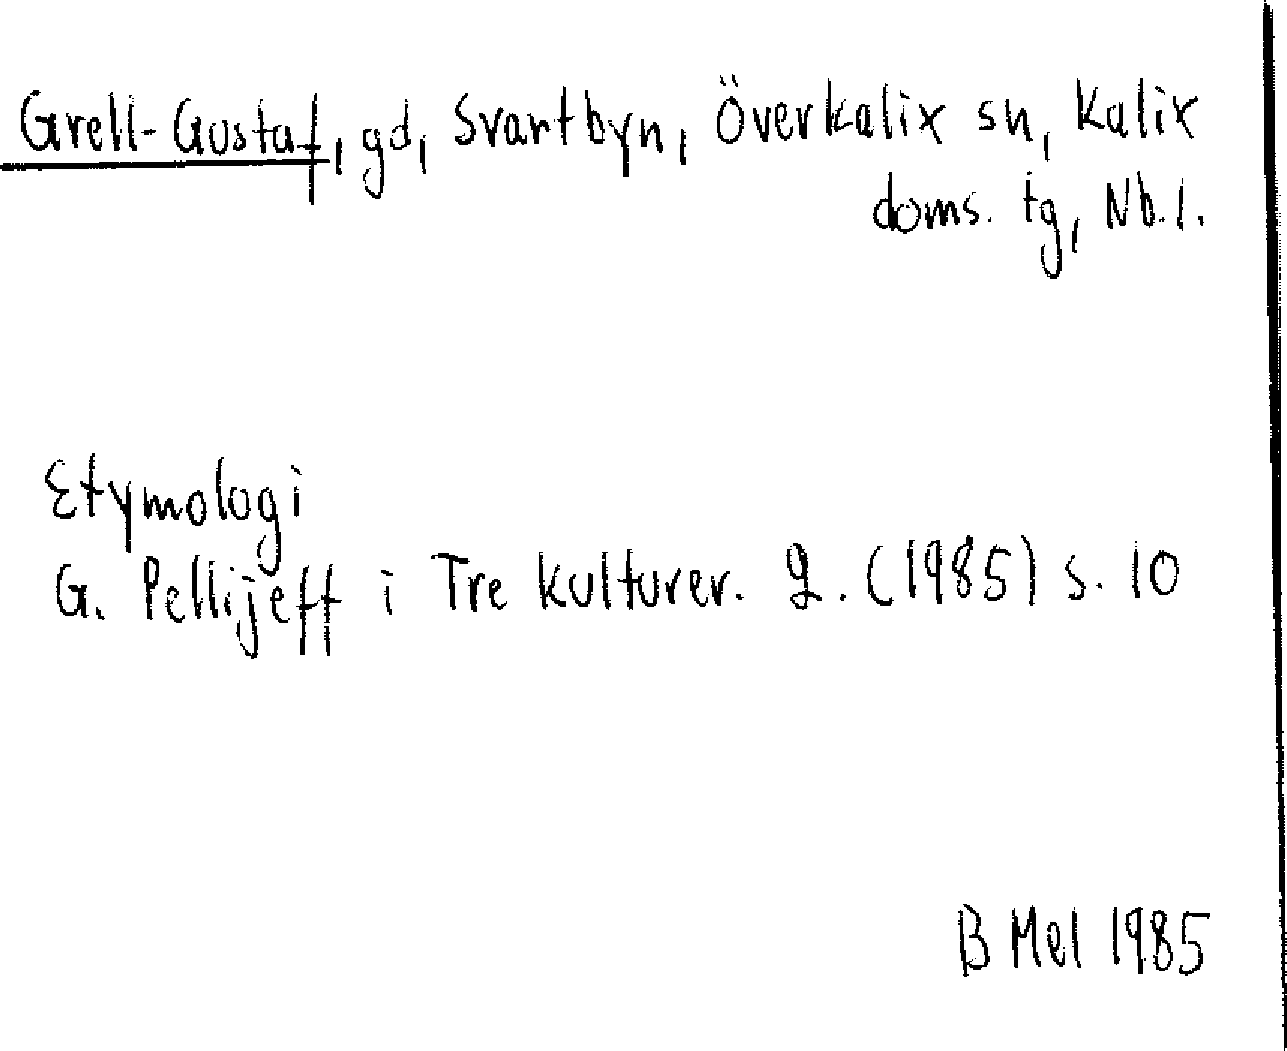 Grell-Gustaf, gd, Svartbyn, Överkalix sn, Kalix
doms. tg, Nb. l.
Etymologi
G. Pellijeff i Tre kulturer. 2. (1985) s. 10
B Mel 1985